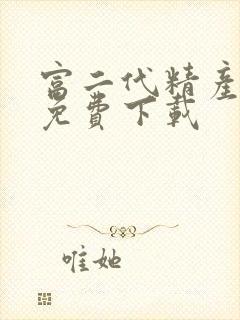 富二代精产
免費下载
唯她